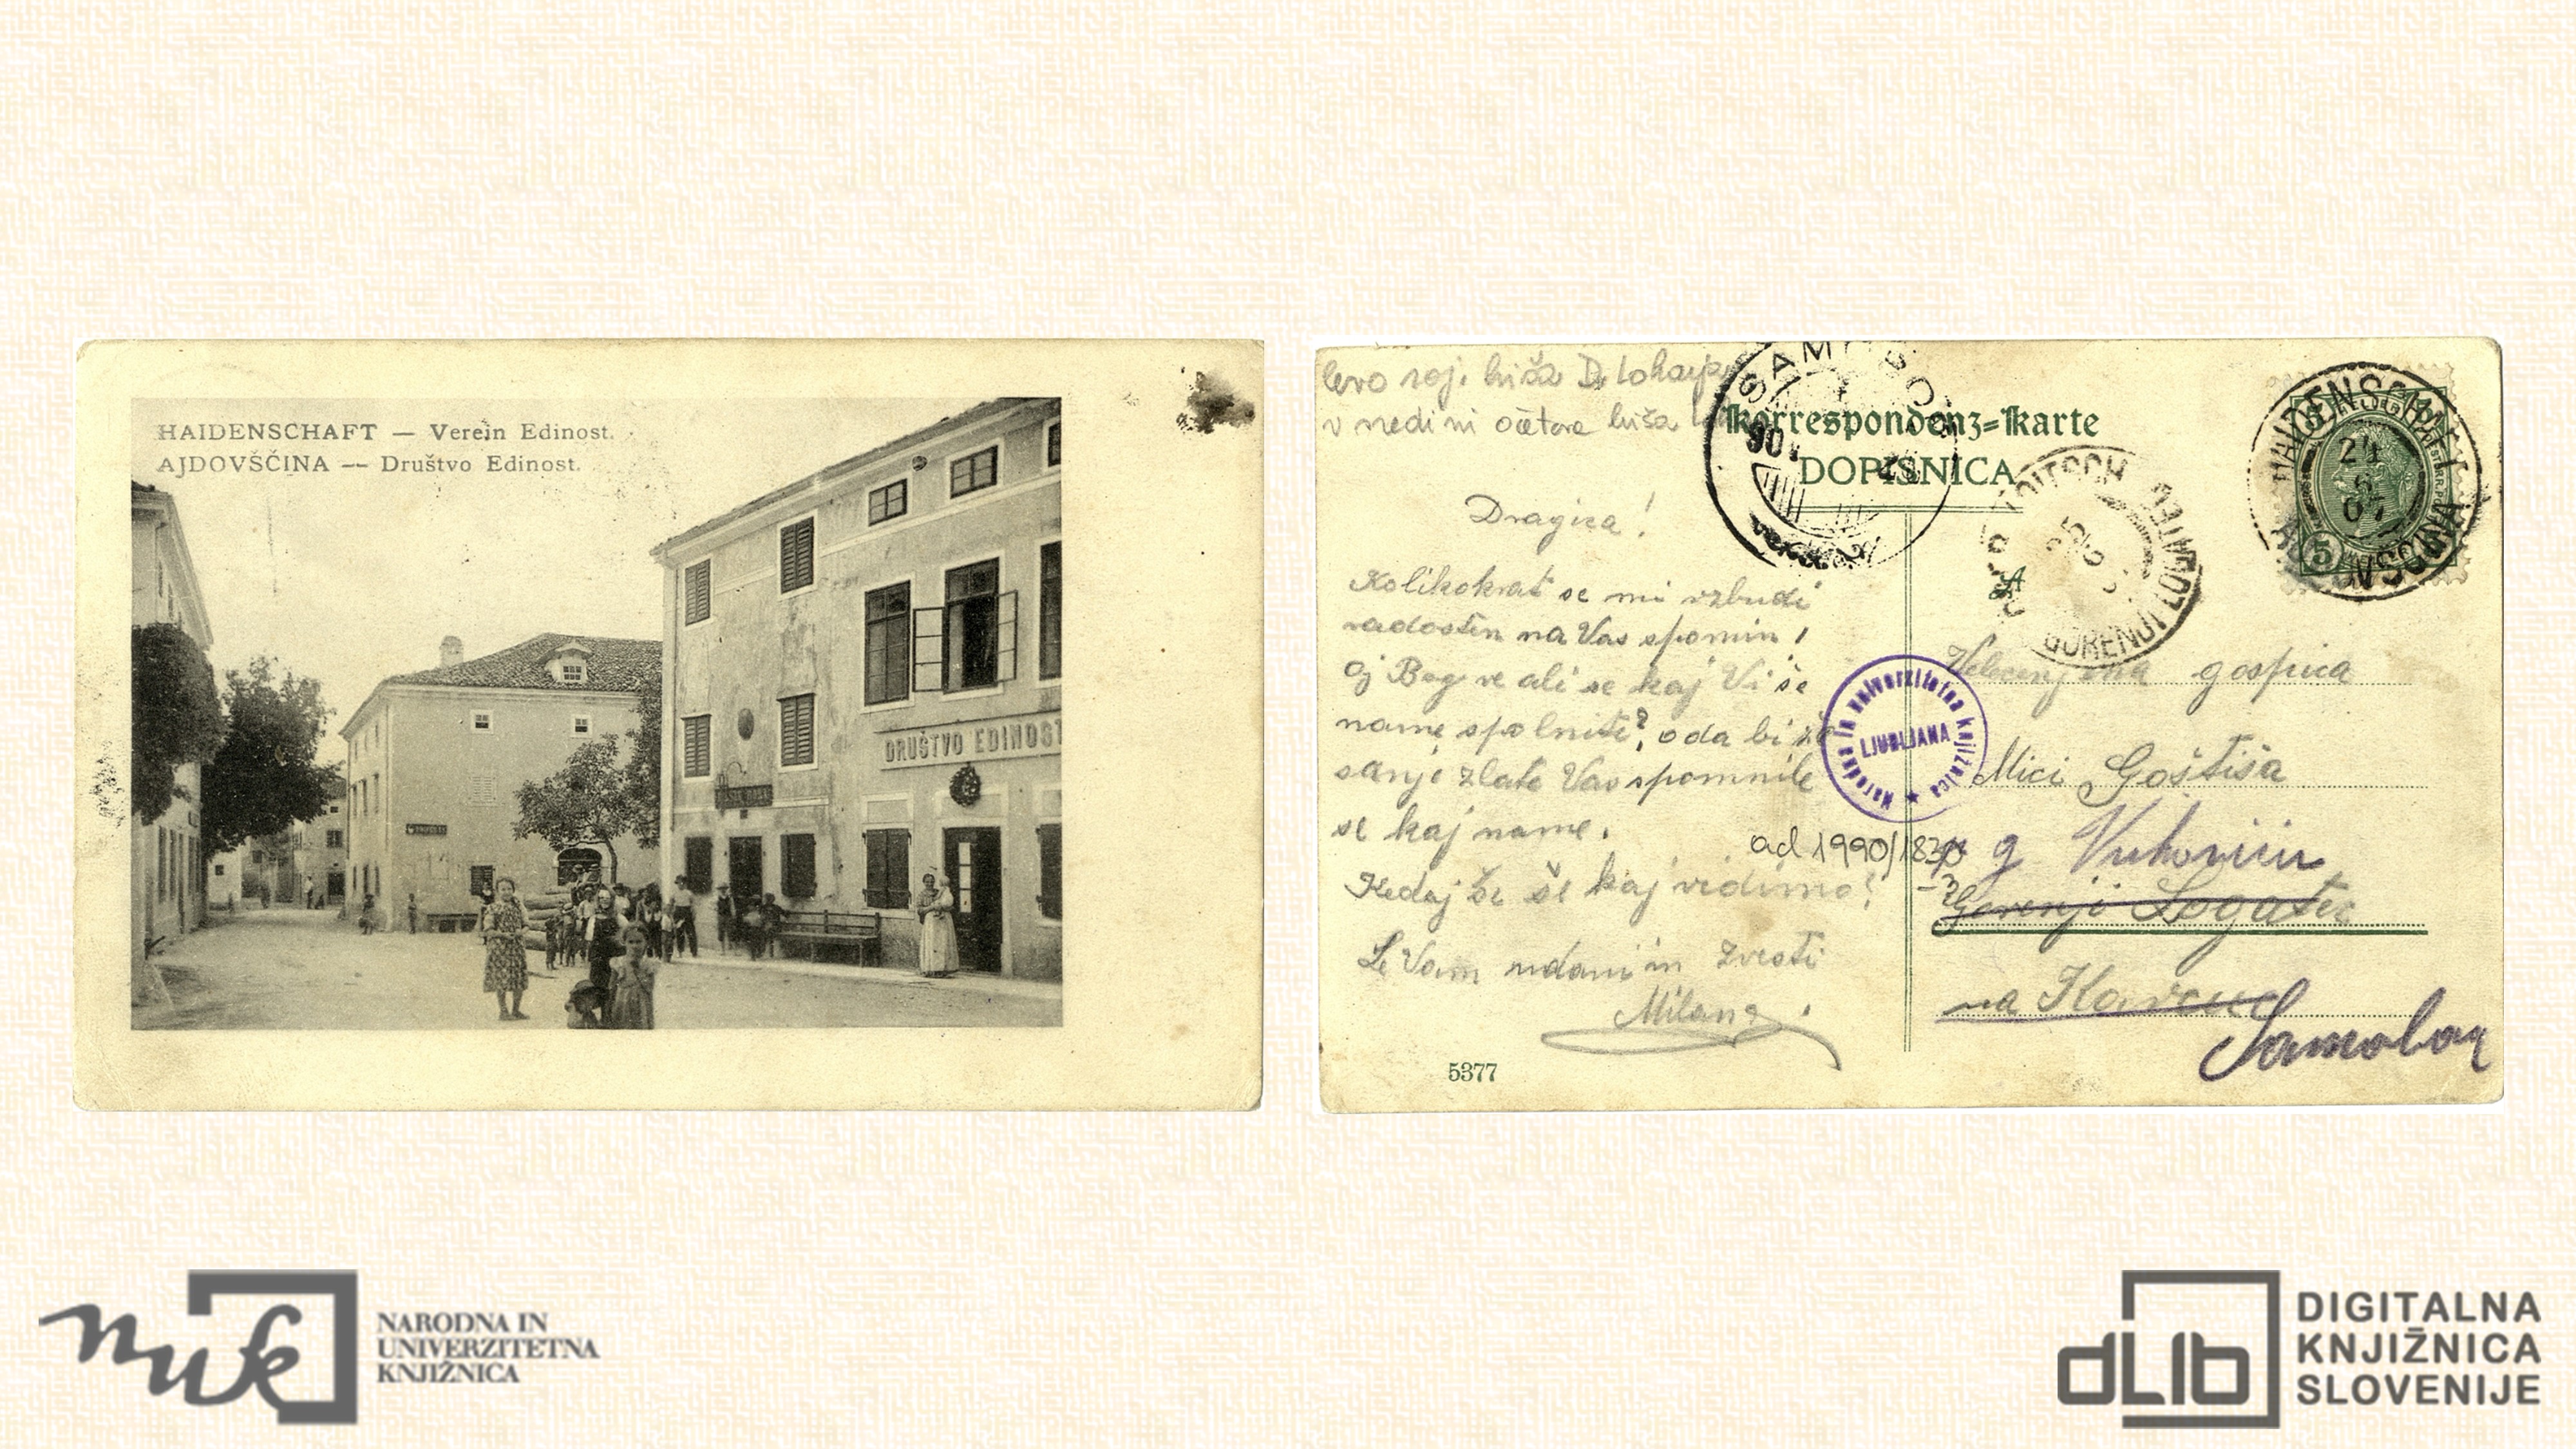 HAIDENSCHAFT — Verein Edinost.
AJDOVŠČINA — Društvo Edinost.
DRUŠTVO EDINOST
levo roj. hiša D. Lokarja
v sredini očetova hiša
Korrespondenz-Karte
DOPISNICA
Dragica!
Kolikokrat se mi vzbudi
radosten na Vas spomin,
Oj Bog ve ali se kaj Vi še
name spolnite?, o da bi
sanje zlate Vas spomnile
se kaj name.
Kedaj že še kaj vidimo!
Le Vam udani in zvesti
Milan
5377
SAMOBOR
LOITSCH
GORENJI LOGATEC
HAIDENSCHAFT
AJDOVŠČINA
24
6
07
5
Narodna in univerzitetna knjižnica
LJUBLJANA
ad 1990/1830
Velecenjena gospica
Mici Goštiša
g
Gorenji Logatec
na
Samobor
nuk
NARODNA IN
UNIVERZITETNA
KNJIŽNICA
dLib
DIGITALNA
KNJIŽNICA
SLOVENIJE